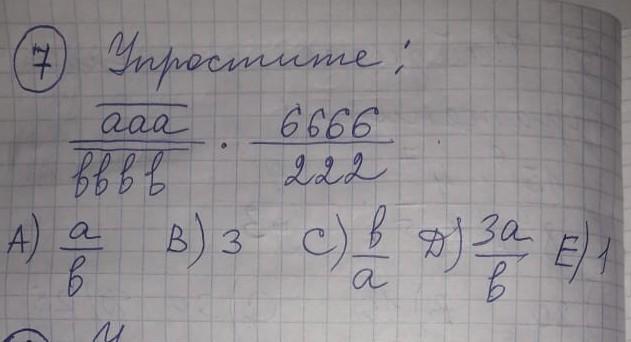 7 Упростите:
aaa / bbbb · 6666 / 222
A) a/b B) 3 C) b/a D) 3a/b E) 1